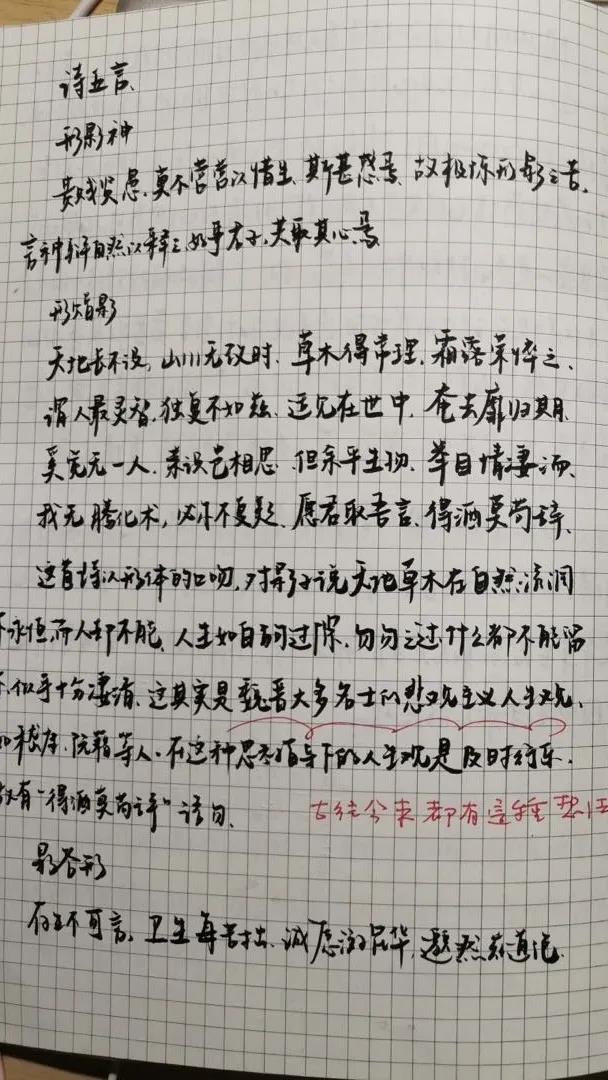 诗五言
形影神
贵贱贤愚,莫不营营以惜生,斯甚惑焉,故极陈形影之苦,
言神辨自然以释之,好事君子,共取其心焉
形赠影
天地长不没,山川无改时,草木得常理,霜露荣悴之,
谓人最灵智,独复不如兹,适见在世中,奄去靡归期,
奚觉无一人,亲识岂相思,但余平生物,举目情凄洏,
我无腾化术,必尔不复疑,愿君取吾言,得酒莫苟辞,
这首诗以形体的口吻,对影子说天地草木在自然流洞
永恒,而人却不能,人生如白驹过隙,匆匆之过,什么都不能留
似乎十分凄清,这其实是魏晋大多名士的悲观主义人生观,
如嵇康,阮籍等人,在这种思想指导下的人生观是及时行乐,
故有“得酒莫苟辞”语句,
古往今来都有這種悲
影答形
存生不可言,卫生每苦拙,诚愿游昆华,邈然兹道绝